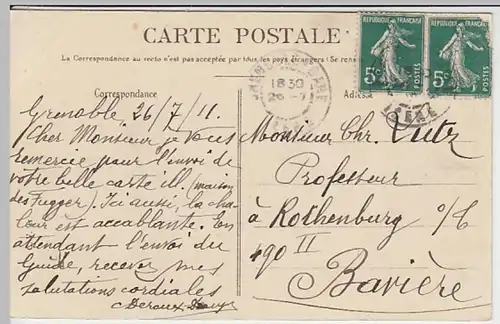 CARTE POSTALE
La Correspondance au recto n'est pas acceptée par tous les pays étrangers (Se rens
Correspondance
Grenoble 26/7/11.
Cher Monsieur je vous
remercie pour l'envoi de
votre belle carte ill. (maison
des Fugger). Ici aussi, la cha-
leur est accablante. En
attendant l'envoi du
Guide, recevez mes
salutations cordiales
Adresse
Monsieur Chr. Lutz
Professeur
à Rothenburg o/T
490 II
Bavière
REPUBLIQUE FRANÇAISE
5c
POSTES
REPUBLIQUE FRANÇAISE
5c
POSTES
GRENOBLE
18 30
26 -7